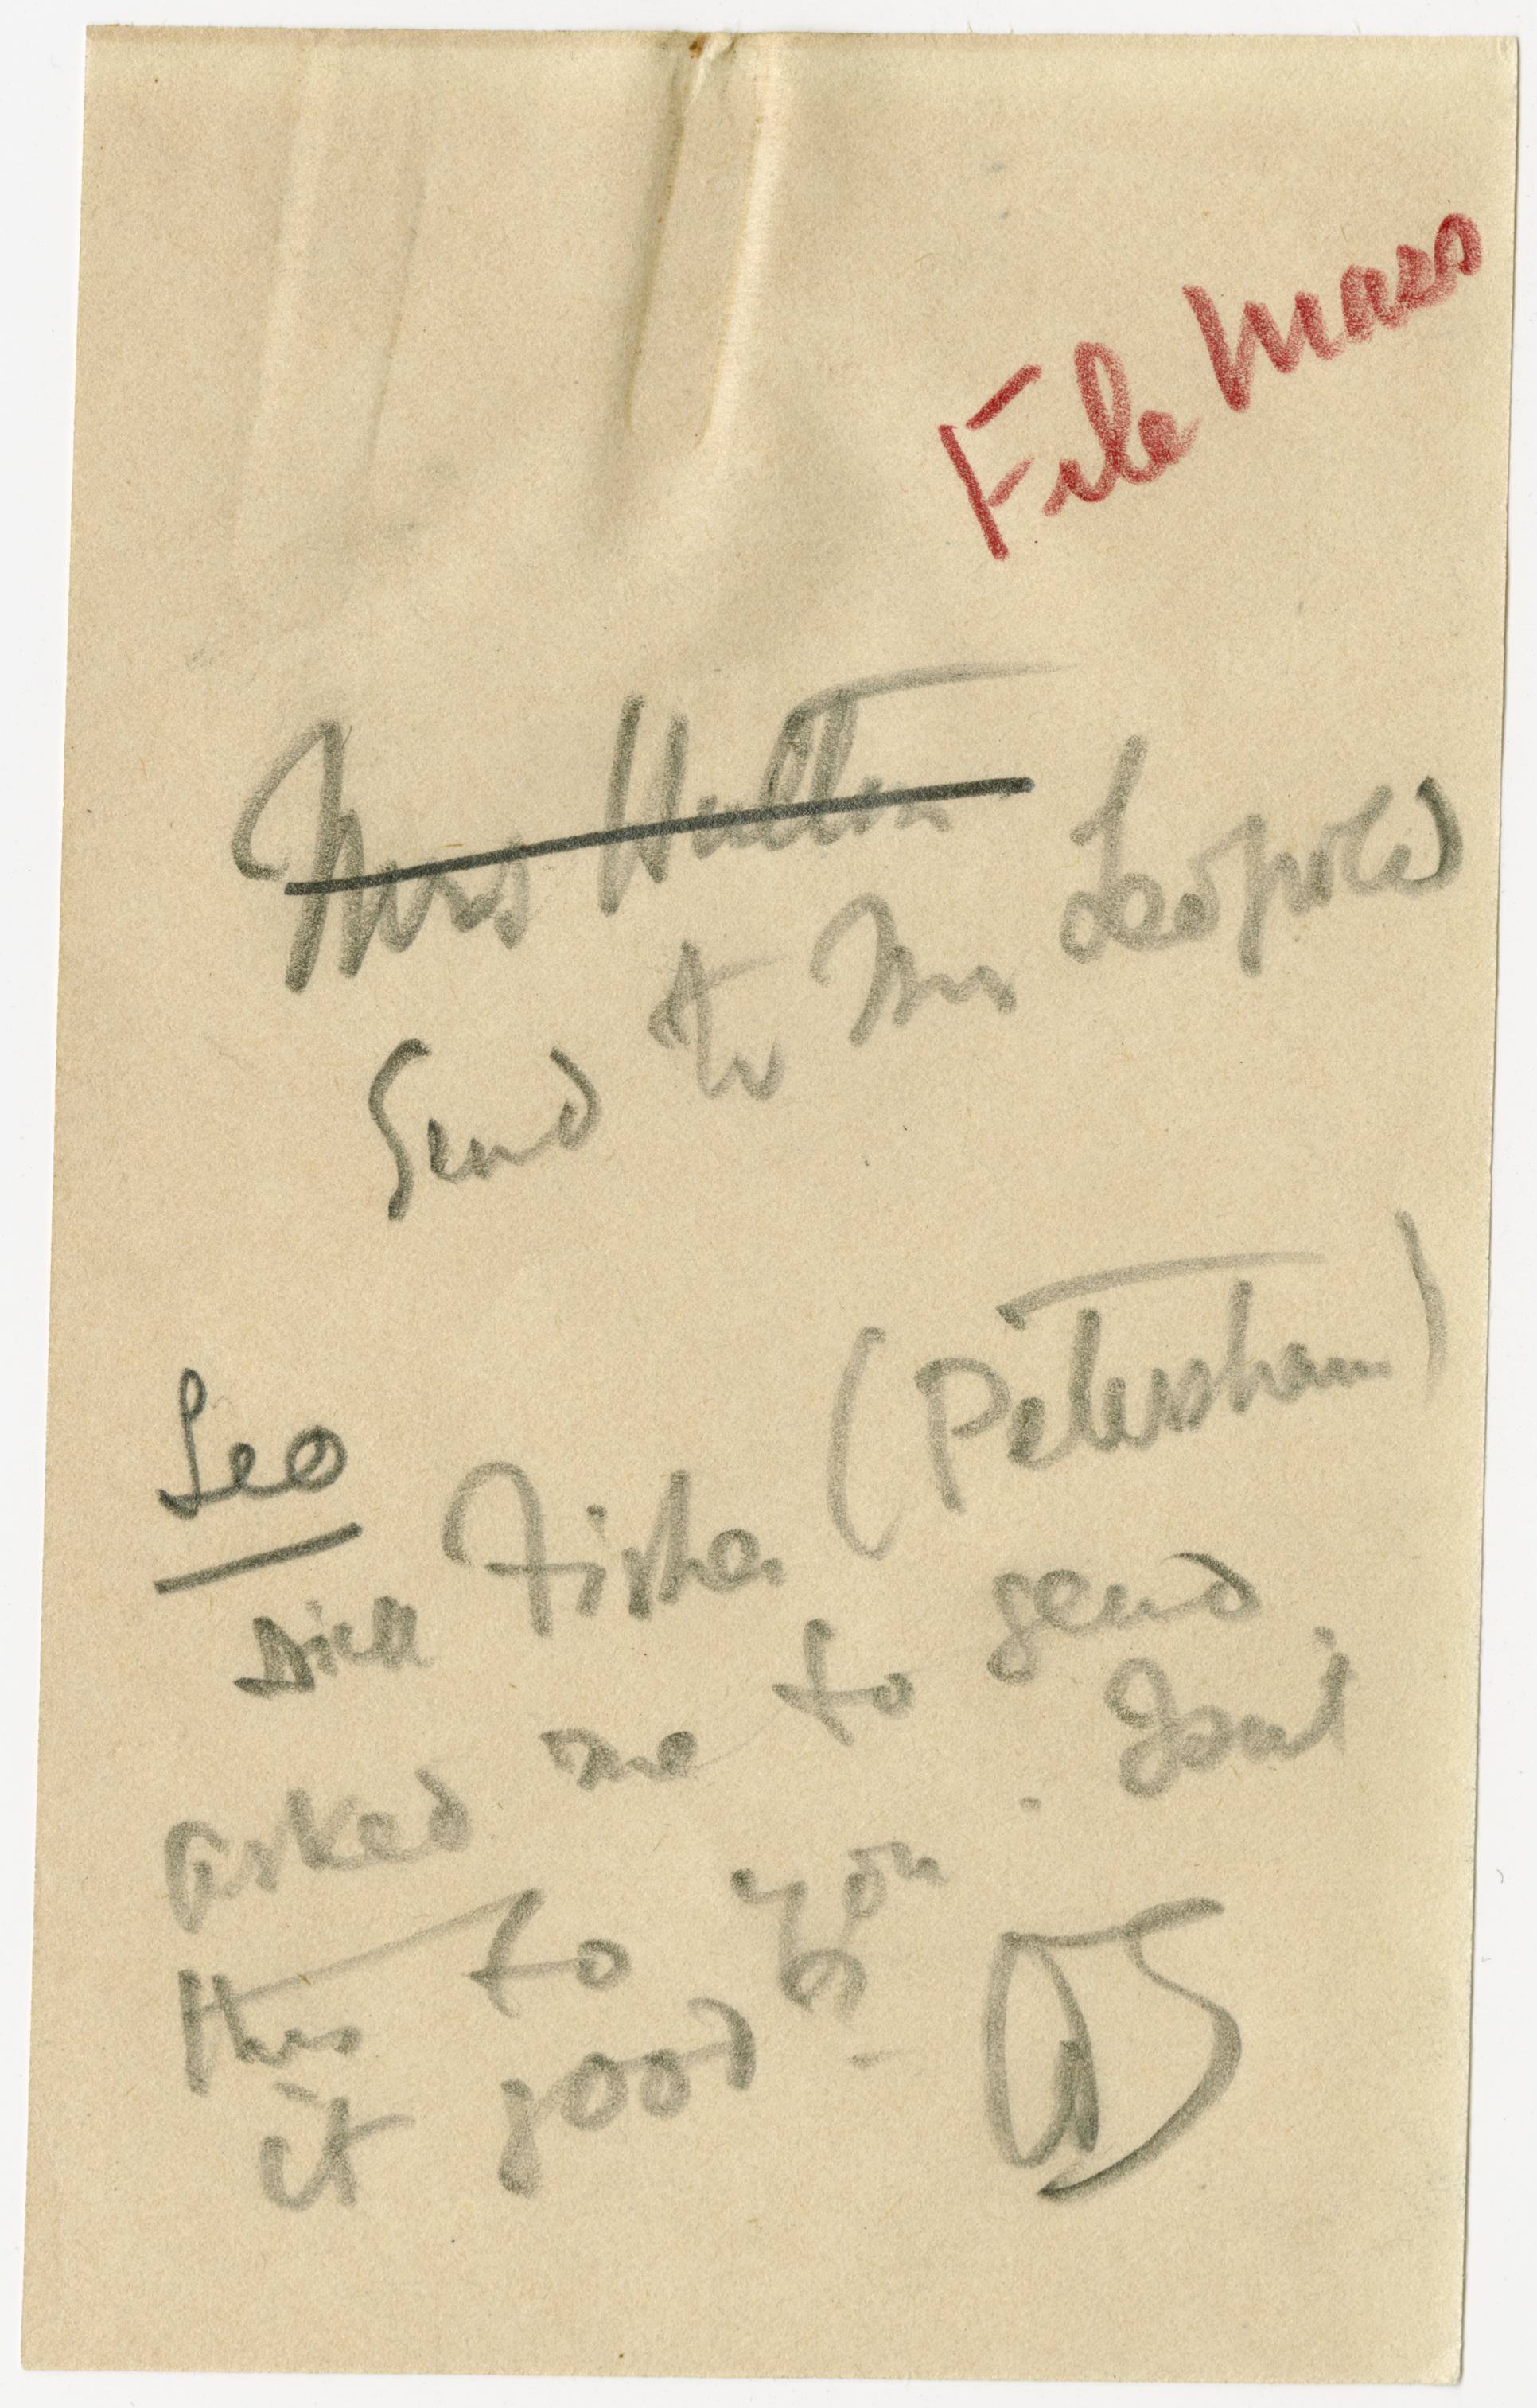 File Mass
Mrs
Send to Mrs Leopold
Leo
Dick Fisher (Petersham)
asked me to send
this to you. Isn't
it good?